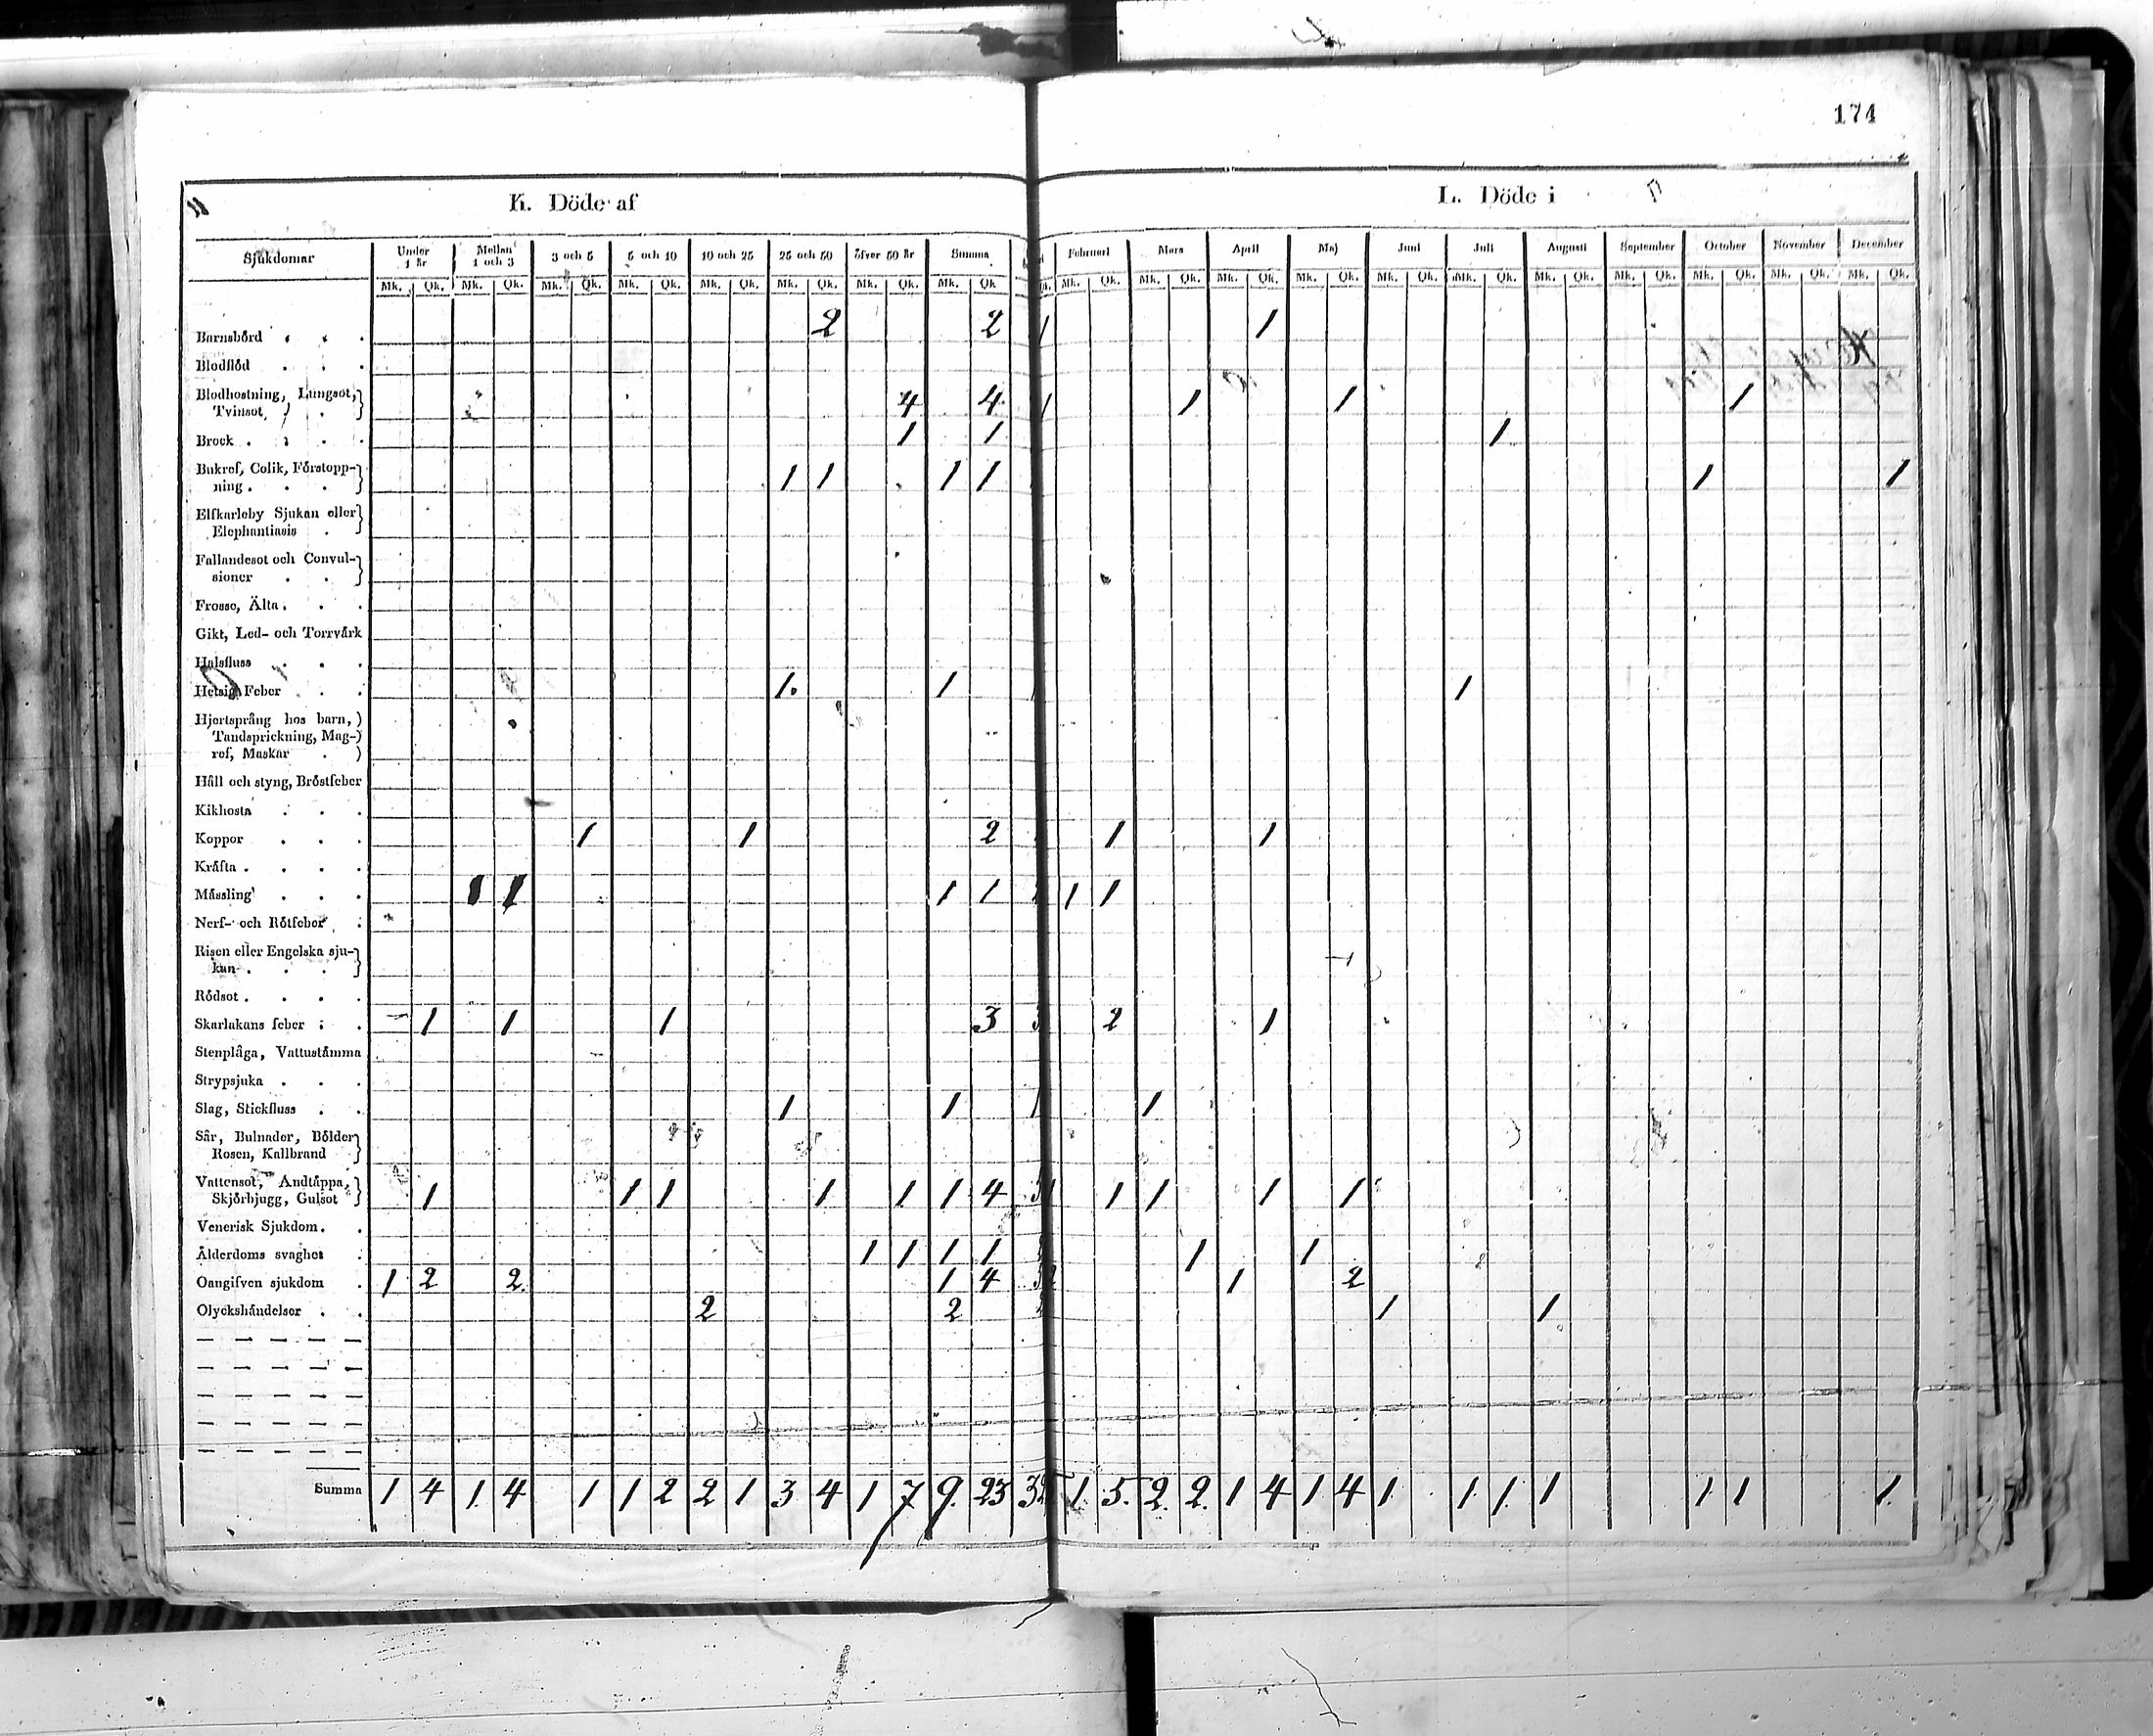 174
K. Döde af
L. Döde i
Sjukdomar Under 1 år Mellan 1 och 3 3 och 5 5 och 10 10 och 25 25 och 50 öfver 50 år Summa Februari Mars April Maj Juni Juli Augusti September October November December
Mk. Qk. Mk. Qk. Mk. Qk. Mk. Qk. Mk. Qk. Mk. Qk. Mk. Qk. Mk. Qk. Qk. Mk. Qk. Mk. Qk. Mk. Qk. Mk. Qk. Mk. Qk. Mk. Qk. Mk. Qk. Mk. Qk. Mk. Qk. Mk. Qk. Mk. Qk.
Barnsbörd 2 2 1 1
Blodflöd
Blodhostning, Lungsot,
Tvinsot, 4 4 1 1 1 1
Brock 1 1 1
Bukref, Colik, Förstopp-
ning 1 1 1 1 1 1
Elfkarleby Sjukan eller
Elephantiasis
Fallandesot och Convul-
sioner
Frosso, Älta
Gikt, Led- och Torrvärk
Halsfluss
Hetsig Feber 1. 1 1
Hjertsprång hos barn,
Tandsprickning, Mag-
ref, Maskar
Håll och styng, Bröstfeber
Kikhosta
Koppor 1 1 2 1 1
Kräfta
Mässling 1 1 1 1 1 1
Nerf- och Rötfeber
Risen eller Engelska sju-
kan
Rödsot
Skarlakans feber 1 1 1 3 3 2 1
Stenplåga, Vattustämma
Strypsjuka
Slag, Stickfluss 1 1 1
Sår, Bulnader, Bölder
Rosen, Kallbrand
Vattensot, Andtäppa,
Skjörbjugg, Gulsot 1 1 1 1 1 1 4 1 1 1 1
Venerisk Sjukdom
Ålderdoms svaghet 1 1 1 1 1 1
Oangifven sjukdom 1 2 2 1 4 1 2
Olyckshändelser 2 2 1 1
Summa 1 4 1 4 1 1 2 2 1 3 4 1 7 9 23 1 5 2 2 1 4 1 4 1 1 1 1 1 1 1